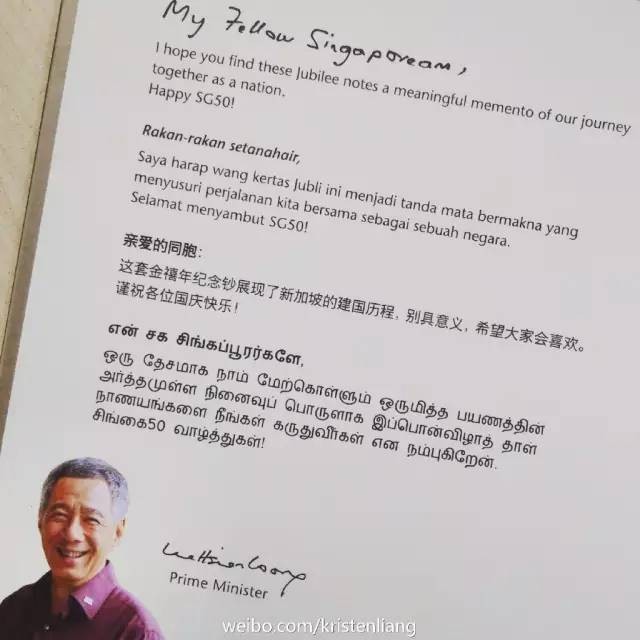 My Fellow Singaporeans,
I hope you find these Jubilee notes a meaningful memento of our journey
together as a nation.
Happy SG50!
Rakan-rakan setanahair,
Saya harap wang kertas Jubli ini menjadi tanda mata bermakna yang
menyusuri perjalanan kita bersama sebagai sebuah negara.
Selamat menyambut SG50!
亲爱的同胞：
这套金禧年纪念钞展现了新加坡的建国历程，别具意义，希望大家会喜欢。
谨祝各位国庆快乐！
என் சக சிங்கப்பூரர்களே,
ஒரு தேசமாக நாம் மேற்கொள்ளும் ஒருமித்த பயணத்தின்
அர்த்தமுள்ள நினைவுப் பொருளாக இப்பொன்விழாத் தாள்
நாணயங்களை நீங்கள் கருதுவீர்கள் என நம்புகிறேன்.
சிங்கை50 வாழ்த்துகள்!
Lee Hsien Loong
Prime Minister
weibo.com/kristenliang